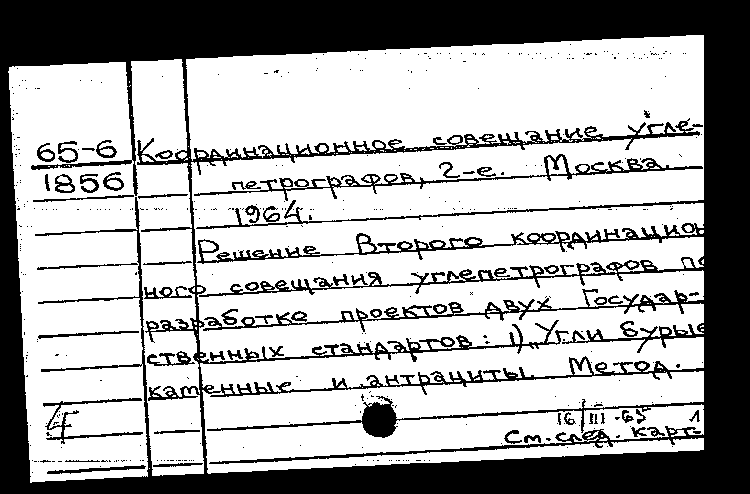 65-6 Координационное совещание угле-
1856 петрографов, 2-е. Москва.
1964.
Решение Второго координацион
ного совещания углепетрографов по
разработке проектов двух Государ-
ственных стандартов: 1) „Угли бурые
каменные и антрациты. Метод.
4
16/III-65 1
См. след. карт.